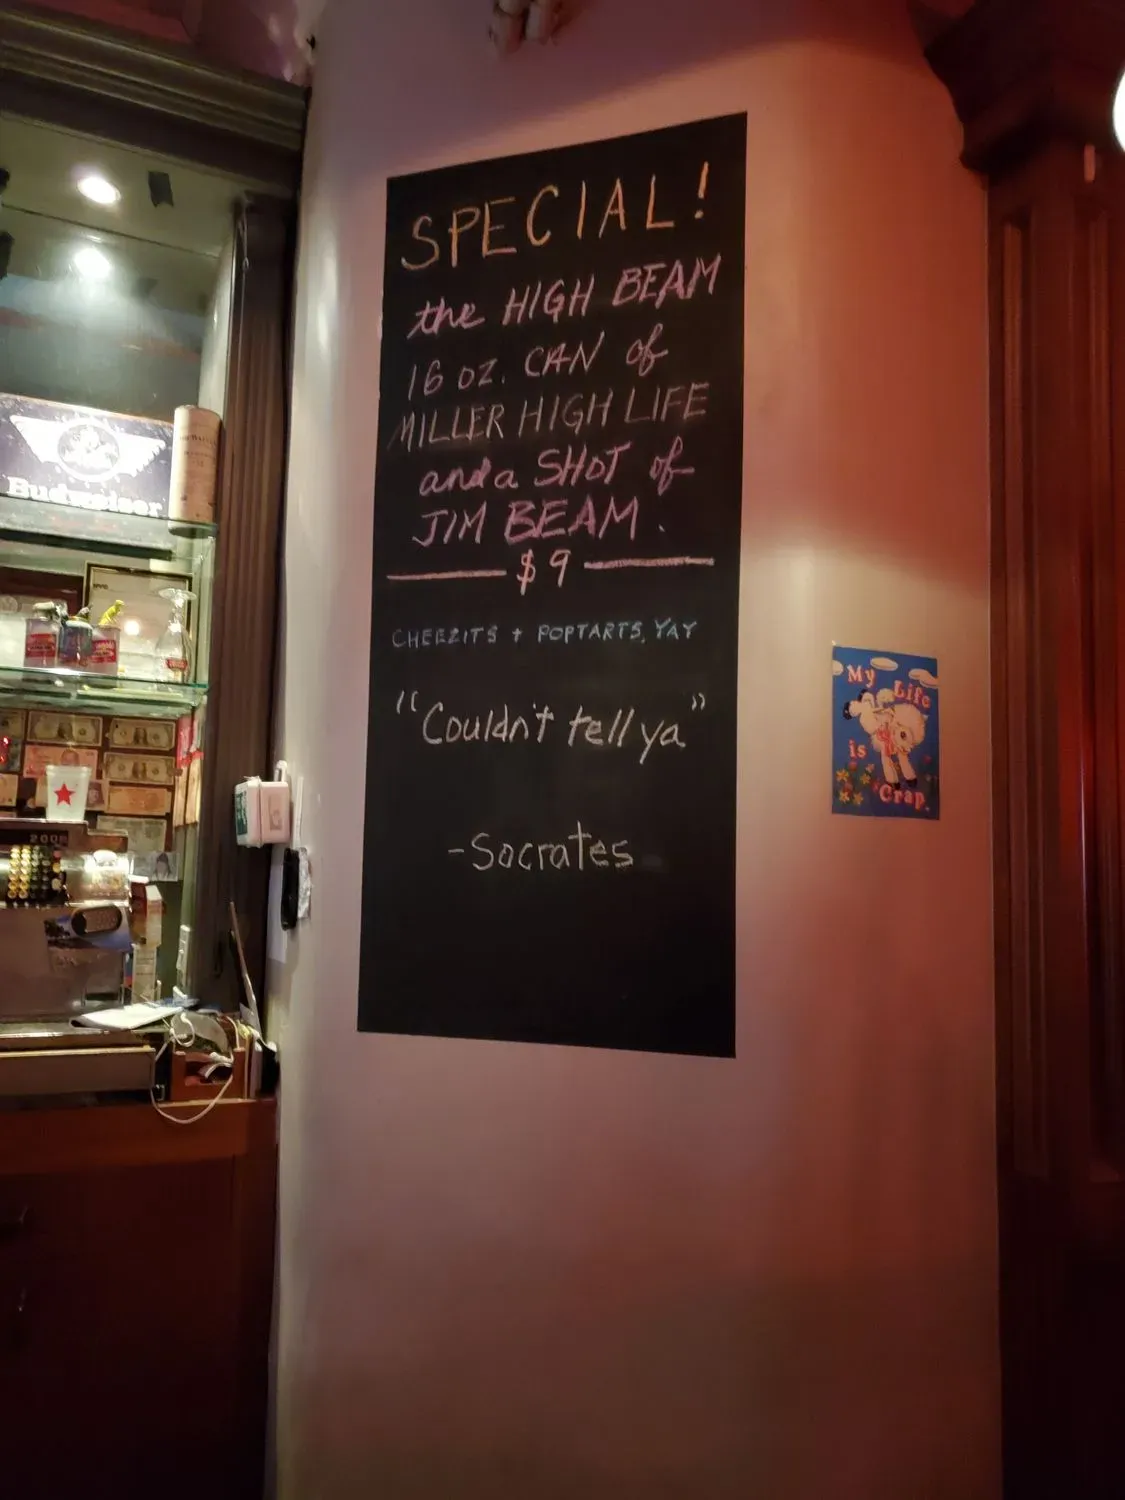 SPECIAL!
the HIGH BEAM
16 oz. CAN of
MILLER HIGH LIFE
and a SHOT of
JIM BEAM.
$9
CHEEZITS + POPTARTS, YAY
"Couldn't tell ya"
-Socrates
My
Life
is
Crap.
Budweiser
2008